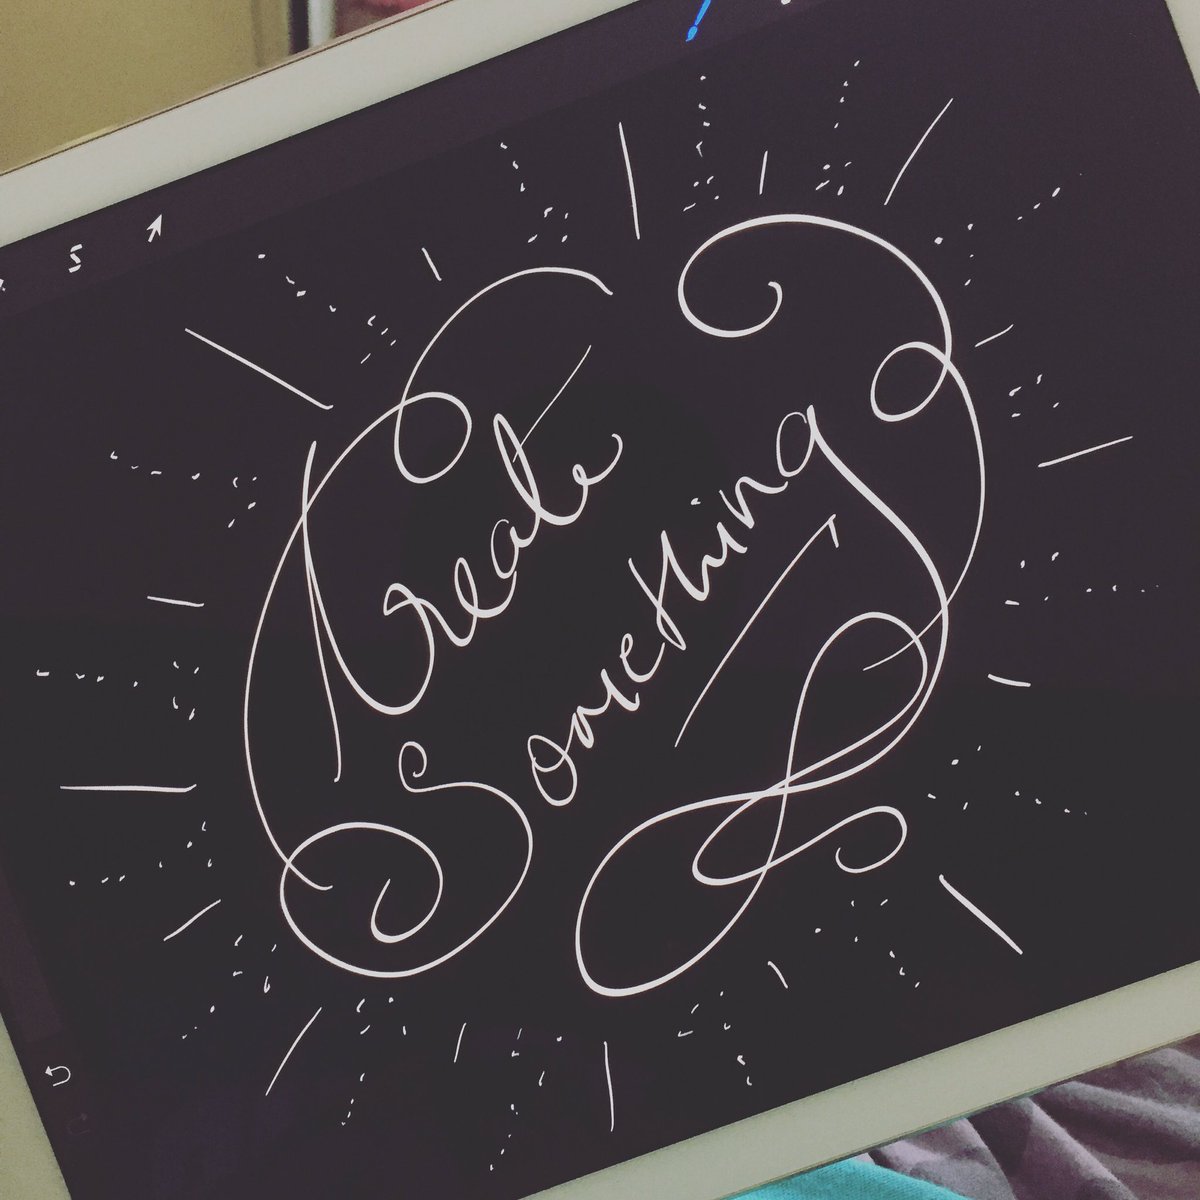 Create
Something